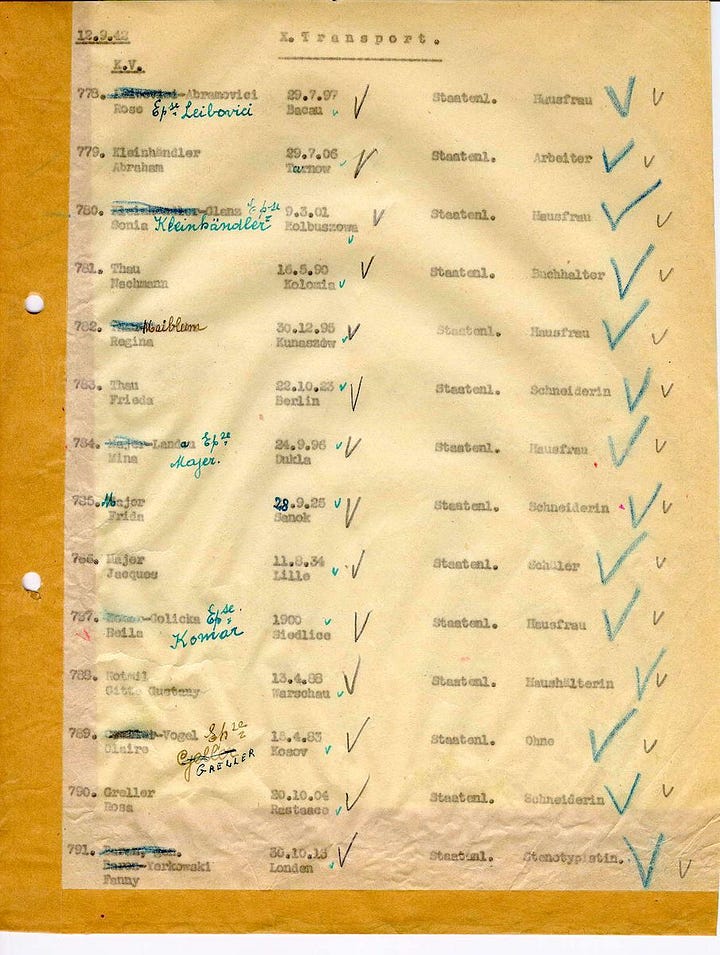 12.9.42 X. Transport.
K.V.
778. -Abramovici 29.7.97 Staatenl. Hausfrau
Rose Epse Leibovici Bacau
779. Kleinhändler 29.7.06 Staatenl. Arbeiter
Abraham Tarnow
780. -Glanz Epse 9.3.01 Staatenl. Hausfrau
Sonia Kleinhändler Kolbuszowa
781. Thau 16.5.90 Staatenl. Buchhalter
Nachmann Kolomia
782. Maiblum 30.12.95 Staatenl. Hausfrau
Regina Kunaszów
783. Thau 22.10.23 Staatenl. Schneiderin
Frieda Berlin
784. Majer-Landau Epse 24.9.96 Staatenl. Hausfrau
Mina Majer. Dukla
785. Major 28.9.25 Staatenl. Schneiderin
Frida Sanok
786. Majer 11.8.34 Staatenl. Schüler
Jacques Lille
787. -Golicka Epse. 1900 Staatenl. Hausfrau
Beila Komar Siedlice
788. Rotmil 13.4.88 Staatenl. Haushälterin
Gitta Gusteny Warschau
789. -Vogel Epse Staatenl. Ohne
Claire GRELLER Kosov
790. Greller 20.10.04 Staatenl. Schneiderin
Rosa
791. Baran, gen. 30.10.13 Staatenl. Stenotypistin.
Baron-Yarkowski London
Fanny